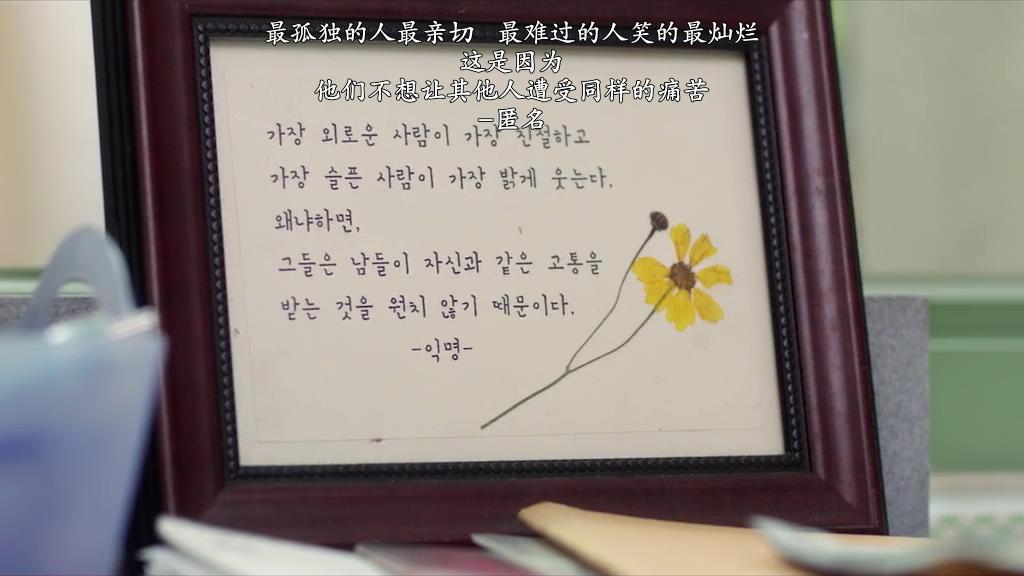 最孤独的人最亲切 最难过的人笑的最灿烂
这是因为
他们不想让其他人遭受同样的痛苦
–匿名
가장 외로운 사람이 가장 친절하고
가장 슬픈 사람이 가장 밝게 웃는다.
왜냐하면,
그들은 남들이 자신과 같은 고통을
받는 것을 원치 않기 때문이다.
-익명-